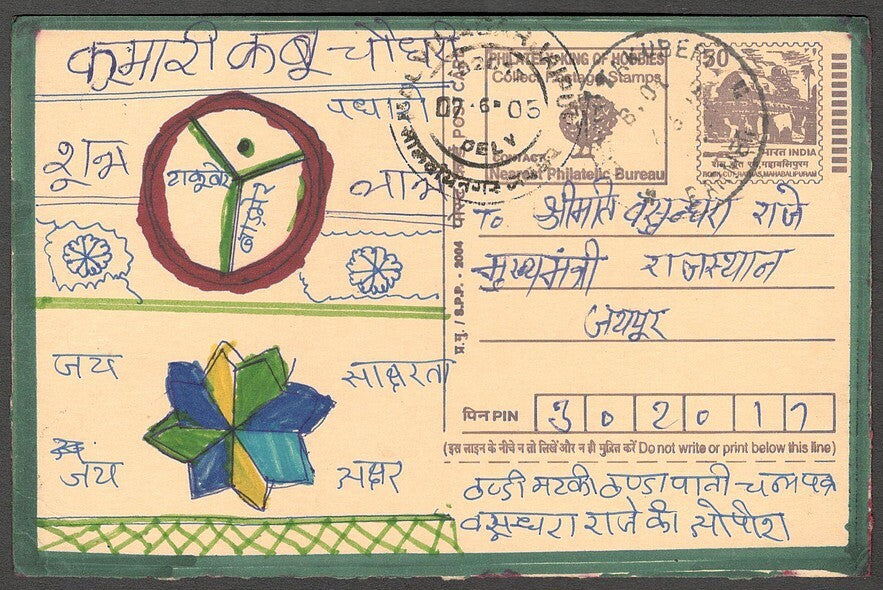 कुमारी कबू चौधरी
शुभ लाभ
टाकूबेरी
बाड़मेर
जय साक्षरता
जय अक्षर
POST CARD
प्र.मु./S.P.P. - 2004
PHILATELY KING OF HOBBIES
Collect Postage Stamps
CONTACT:
Nearest Philatelic Bureau
07-6-05
DELY
50
भारत INDIA
ROCK-CUT RATHAS, MAHABALIPURAM
To श्रीमति वसुन्धरा राजे
मुख्यमंत्री राजस्थान
जयपुर
पिन PIN 302017
(इस लाइन के नीचे न तो लिखें और न ही मुद्रित करें Do not write or print below this line)
ठण्डी मटकी ठण्डा पानी
वसुन्धरा राजे की